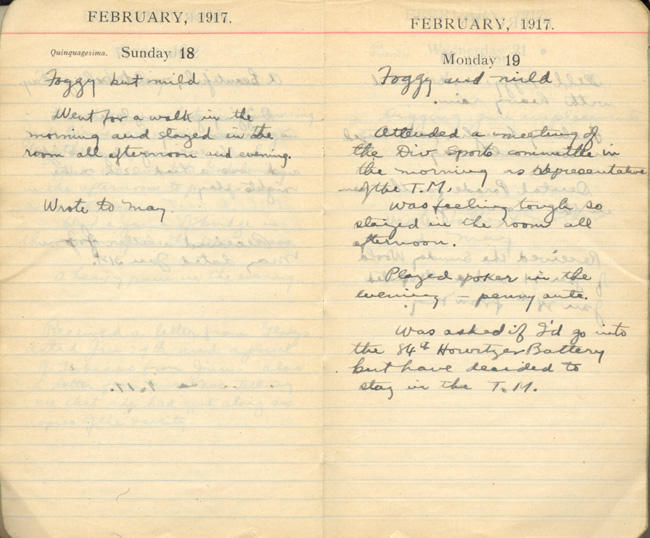 FEBRUARY, 1917.
Quinquagesima. Sunday 18
Foggy but mild
Went for a walk in the
morning and stayed in the
room all afternoon and evening.
Wrote to May.
FEBRUARY, 1917.
Monday 19
Foggy and mild
Attended a meeting of
the Div. Sports committee in
the morning as representative
of the T.M.
Was feeling tough so
stayed in the room all
afternoon.
Played poker in the
evening – penny ante.
Was asked if I'd go into
the 84th Howitzer Battery
but have decided to
stay in the T.M.